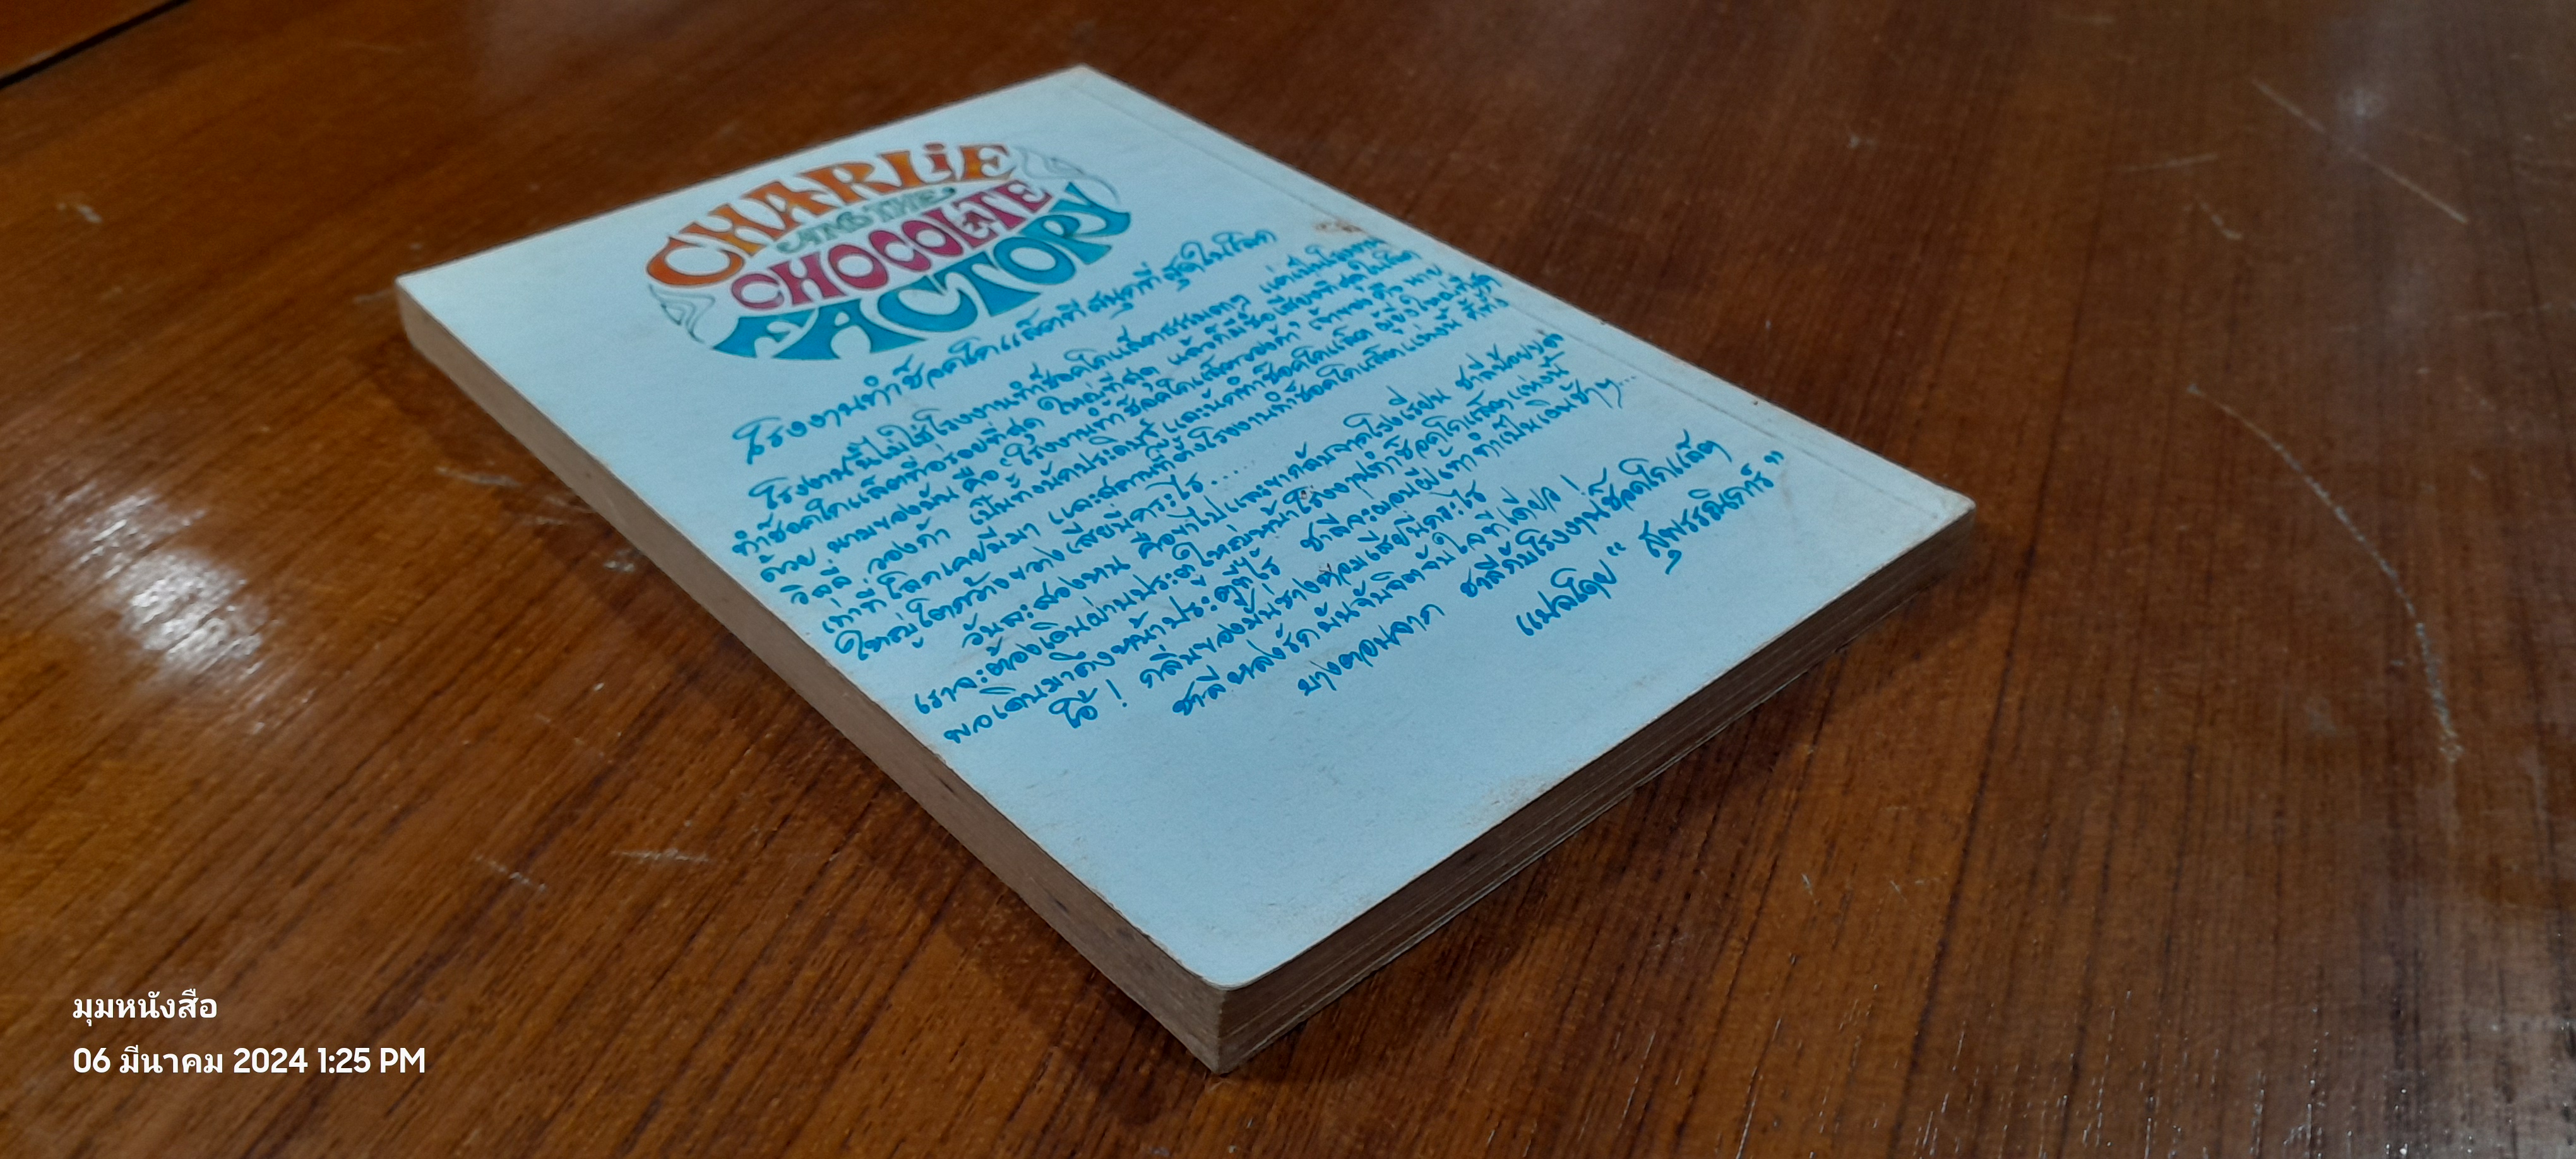 CHARLiE
AND THE
CHOCOLATE
FACTORY
โรงงานทำช๊อคโคแล็ตที่สนุกที่สุดในโลก
โรงงานนี้ไม่ใช่โรงงานทำช๊อคโคแล็ตธรรมดาๆ แต่เป็นโรงงาน
ทำช๊อคโคแล็ตที่อร่อยที่สุด ใหญ่ที่สุด แล้วก็มีชื่อเสียงที่สุดในโลก
ด้วย นามของมันคือ "โรงงานทำช๊อคโคแล็ตวองก้า" เจ้าของคือ นาย
วิลลี่ วองก้า เป็นทั้งนักประดิษฐ์และนักทำช๊อคโคแล็ต ผู้ยิ่งใหญ่ที่สุด
เท่าที่โลกเคยมีมา และสถานที่ตั้งโรงงานทำช๊อคโคแล็ตแห่งนี้ ก็ช่าง
ใหญ่โตกว้างขวางเสียนี่กระไร.....
วันละสองหน คือขาไปและขากลับจากโรงเรียน ชาลีน้อยของ
เราจะต้องเดินผ่านประตูใหญ่หน้าโรงงานทำช๊อคโคแล็ตแห่งนี้
พอเดินมาถึงหน้าประตูทีไร ชาลีจะผ่อนฝีเท้าทำเป็นเดินช้าๆ...
โอ้ ! กลิ่นของมันช่างหอมเสียนี่กระไร
ชาลีหลงรักมันจับจิตจับใจทีเดียว !
บางตอนจาก ชาลีกับโรงงานช๊อคโกแล็ต
แปลโดย " สุพรรณิการ์ "
มุมหนังสือ
06 มีนาคม 2024 1:25 PM